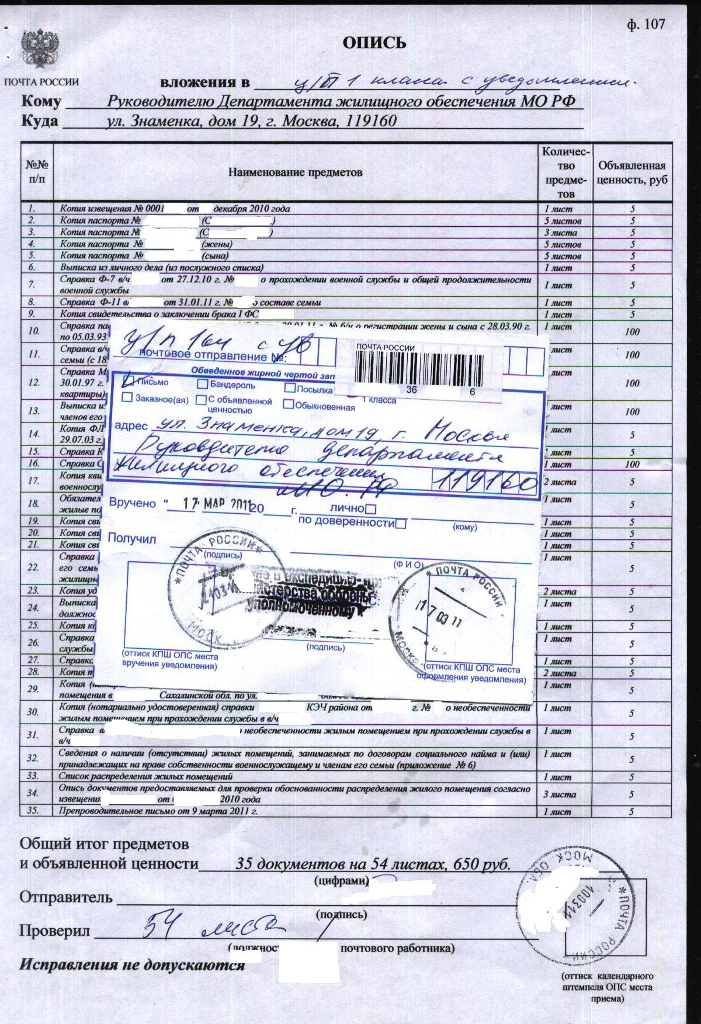 ф. 107
ОПИСЬ
ПОЧТА РОССИИ
вложения в ц/п 1 класса с уведомлением.
Кому Руководителю Департамента жилищного обеспечения МО РФ
Куда ул. Знаменка, дом 19, г. Москва, 119160
№№ п/п
Наименование предметов
Количество предметов
Объявленная ценность, руб
1. Копия извещения № 0001 от декабря 2010 года 1 лист 5
2. Копия паспорта № (С ) 5 листов 5
3. Копия паспорта № (С ) 3 листа 5
4. Копия паспорта № (жены) 5 листов 5
5. Копия паспорта № (сына) 5 листов 5
6. Выписка из личного дела (из послужного списка) 1 лист 5
7. Справка Ф-7 в/ч от 27.12.10 г. № о прохождении военной службы и общей продолжительности 1 лист 5
военной службы
8. Справка Ф-11 в/ от 31.01.11 г. № о составе семьи 1 лист 5
9. Копия свидетельства о заключении брака I ФС 1 лист 5
10. Справка г. № б/н о регистрации жены и сына с 28.03.90 г. 1 лист 100
по 05.03.93
11. Справка в/ч 1 лист 100
семьи (с 18
12. Справка М 1 лист 100
30.01.97 г.
квартиры)
13. Выписка и 1 лист 100
членов его
14. Копия ФЛ 1 лист 5
29.07.03 г.
15. Справка К 1 лист 5
16. Справка 1 лист 100
17. Копия кви 2 листа 5
военнослу
18. Обязател 1 лист 5
жилые по
19. Копия сви 1 лист 5
20. Копия сви 1 лист 5
21. Копия сви 1 лист 5
22. Справка 1 лист 5
его семь
жилищн
23. Копия уд 2 листа 5
24. Выписка 1 лист 5
должнос
25. Копия 1 лист 5
26. Справка 1 лист 5
службы
27. Справка 1 лист 5
28. Копия п 2 листа 5
29. Копия (н 1 лист 5
помещения в Сахалинской обл. по ул.
30. Копия (нотариально удостоверенная) справки КЭЧ района от г. № о необеспеченности 1 лист 5
жилым помещением при прохождении службы в в/ч
31. Справка в о необеспеченности жилым помещением при прохождении службы в 1 лист 5
в/ч
32. Сведения о наличии (отсутствии) жилых помещений, занимаемых по договорам социального найма и (или) 1 лист 5
принадлежащих на праве собственности военнослужащему и членам его семьи (приложение № 6)
33. Список распределения жилых помещений 1 лист 5
34. Опись документов предоставляемых для проверки обоснованности распределения жилого помещения согласно 3 листа 5
извещени от 2010 года
35. Препроводительное письмо от 9 марта 2011 г. 1 лист 5
ц/п 1кл с ув
почтовое отправление №:
ПОЧТА РОССИИ
36 6
Обведенное жирной чертой зап
Письмо Бандероль Посылка 1 класса
Заказное(ая) С объявленной ценностью Обыкновенная
адрес ул. Знаменка, дом 19, г. Москва
Руководителю департамента
жилищного обеспечения 119160
МО РФ
Вручено " 17 МАР 2011 20 г. лично
по доверенности
(кому)
Получил
(подпись)
(Ф И О)
ПОЧТА РОССИИ
МОСК
экспедицию
министерства обороны
уполномоченному
(подпись)
ПОЧТА РОССИИ
17 03 11
МОСКВА
(оттиск КПШ ОПС места вручения уведомления)
(оттиск КПШ ОПС места оформления уведомления)
Общий итог предметов
и объявленной ценности 35 документов на 54 листах, 650 руб.
(цифрами)
Отправитель
(подпись)
Проверил 54 листа
(должность почтового работника)
Исправления не допускаются
ПОЧТА РОССИИ
МОСК ОБЛ
100311
(оттиск календарного
штемпеля ОПС места
приема)